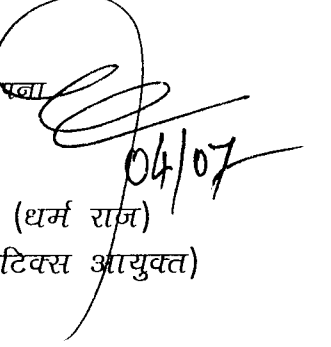 पना
04/07
(धर्म राज)
टिक्स आयुक्त)